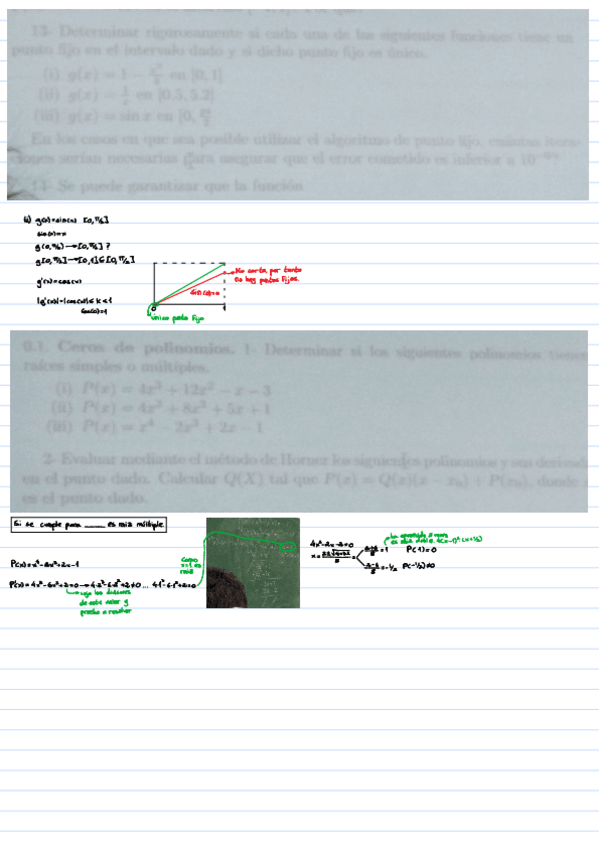 13- Determinar rigurosamente si cada una de las siguientes funciones tiene un
punto fijo en el intervalo dado y si dicho punto fijo es único.
(i) g(x) = 1 − en [0, 1]
(ii) g(x) = en [0.5, 5.2]
(iii) g(x) = sin x en [0,
En los casos en que sea posible utilizar el algoritmo de punto fijo, cuántas itera-
ciones serían necesarias para asegurar que el error cometido es inferior a 10
14- Se puede garantizar que la función
g(x)=sin(x) [0,π/2]
sin(x)=x
g[0,π/2]→[0,π/2]?
g[0,π/2]→[0,1]⊆[0,π/2]
g'(x)=cos(x)
|g'(x)|=|cos(x)|≤k<1
cos(0)=1
No corta, por tanto
no hay puntos fijos.
sin(x)=x
0
único punto fijo
0.1. Ceros de polinomios. 1- Determinar si los siguientes polinomios tienen
raíces simples o múltiples.
(i) P(x) = 4x³ + 12x² − x − 3
(ii) P(x) = 4x³ + 8x² + 5x + 1
(iii) P(x) = x⁴ − 2x³ + 2x − 1
2- Evaluar mediante el método de Horner los siguientes polinomios y sus derivad
en el punto dado. Calcular Q(X) tal que P(x) = Q(x)(x − x₀) + P(x₀), donde
es el punto dado.
Si se cumple para ____ es raíz múltiple.
P(x)=x⁴-2x³+2x-1
P'(x)=4x³-6x²+2=0→4·2³-6·2²+2≠0 ... 4·1³-6·1²+2=0
cojo los divisores
de este valor y
pruebo a resolver
Como
x=1 es
raíz
4x²-2x-2=0
=1
P(1)=0
=-1/2
P(-1/2)≠0